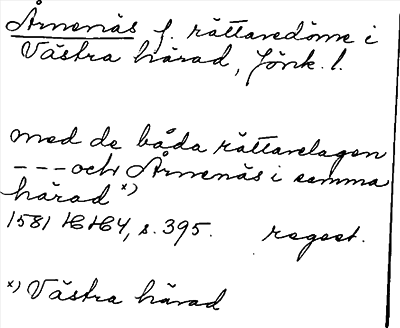 Årnenäs f. rättaredöme i
Västra härad, Jönk. l.
med de båda rättarelagen
---och Årnenäs i samma
härad x)
1581 HH4, s. 395. regest.
x) Västra härad